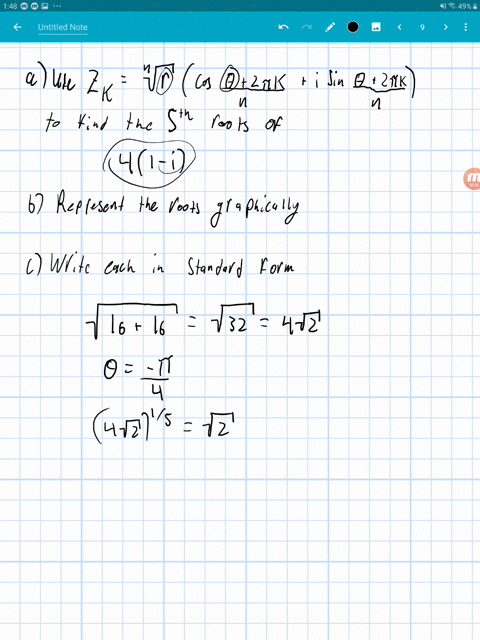 1:48 49%
Untitled Note 9
a) Use Z_K = ⁿ√r (cos (θ+2πK)/n + i sin (θ+2πK)/n)
to find the 5th roots of
4(1-i)
b) Represent the roots graphically
c) Write each in Standard Form
√(16+16) = √32 = 4√2
θ = -π/4
(4√2)^1/5 = √2